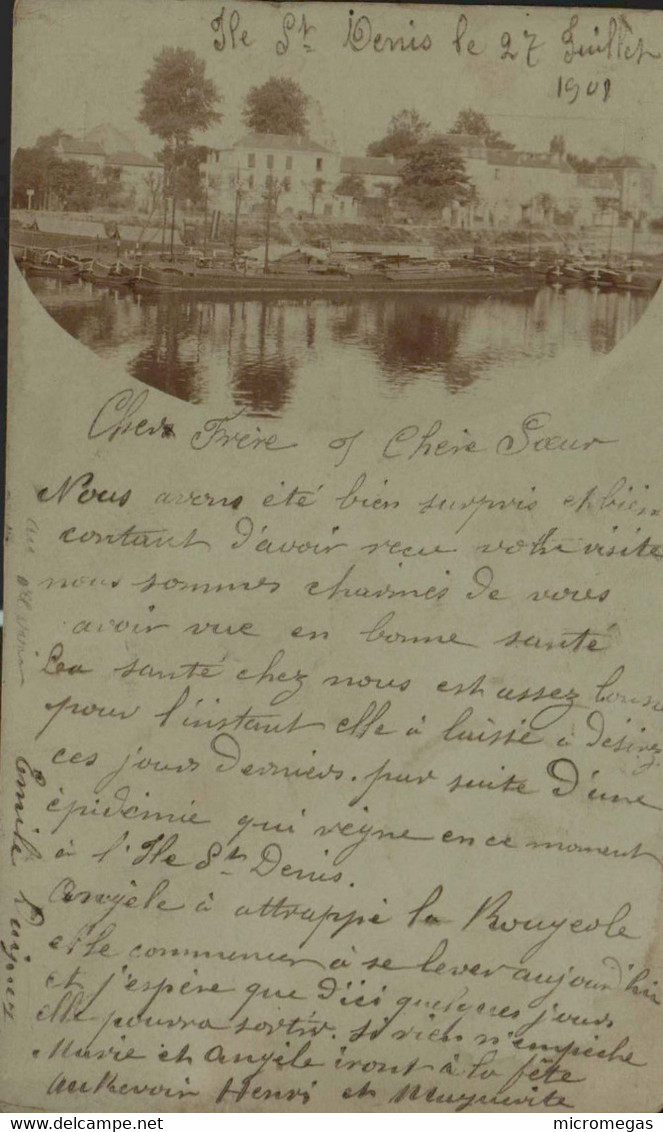 Ile St Denis le 27 Juillet
1901
Cher Frère et Chère Sœur
Nous avons été bien surpris et bien
contant d'avoir reçu votre visite
nous sommes charmés de vous
avoir vue en bonne santé
La santé chez nous est assez bonne
pour l'instant elle à laissé à désirez
ces jours derniers. par suite d'une
épidémie qui règne en ce moment
à l'Ile St Denis.
Angèle à attrappé la Rougeole
elle commencer à se lever aujourd'hui
et j'espère que d'ici quelques jours
elle pourra sortir. si rien n'empêche
Marie et Angèle iront à la fête
au Revoir Henri et Marguerite
au
Emile
delcampe.net
micromegas